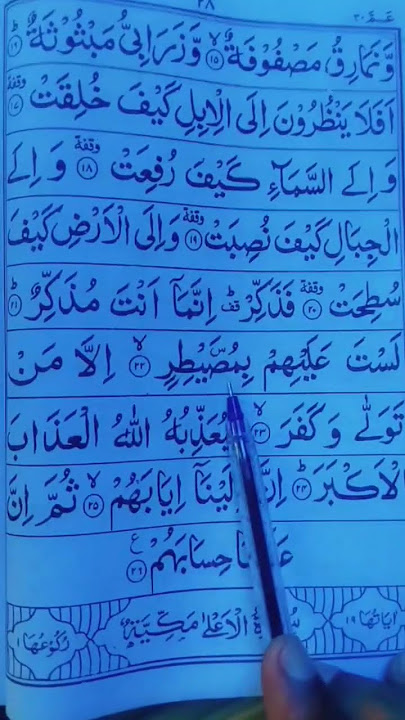 عَمَّ ٣٠
٣٨
وَّنَمَارِقُ مَصْفُوْفَةٌ ۙ﴿١٥﴾ وَّزَرَابِيُّ مَبْثُوْثَةٌ ؕ﴿١٦﴾
اَفَلَا يَنْظُرُوْنَ اِلَى الْاِبِلِ كَيْفَ خُلِقَتْ وقفة ﴿١٧﴾
وَ اِلَى السَّمَآءِ كَيْفَ رُفِعَتْ وقفة ﴿١٨﴾ وَ اِلَى
الْجِبَالِ كَيْفَ نُصِبَتْ وقفة ﴿١٩﴾ وَاِلَى الْاَرْضِ كَيْفَ
سُطِحَتْ وقفة ﴿٢٠﴾ فَذَكِّرْ قف اِنَّمَآ اَنْتَ مُذَكِّرٌ ؕ﴿٢١﴾
لَسْتَ عَلَيْهِمْ بِمُصَۜيْطِرٍ ۙ﴿٢٢﴾ اِلَّا مَنْ
تَوَلّٰى وَ كَفَرَ ۙ﴿٢٣﴾ فَيُعَذِّبُهُ اللّٰهُ الْعَذَابَ
الْاَكْبَرَ ؕ﴿٢٤﴾ اِنَّ اِلَيْنَاۤ اِيَابَهُمْ ۙ﴿٢٥﴾ ثُمَّ اِنَّ
عَلَيْنَا حِسَابَهُمْ ع ﴿٢٦﴾
اٰيَاتُهَا ١٩ سُوْرَةُ الْاَعْلٰى مَكِّيَّةٌ رُكُوْعُهَا ١